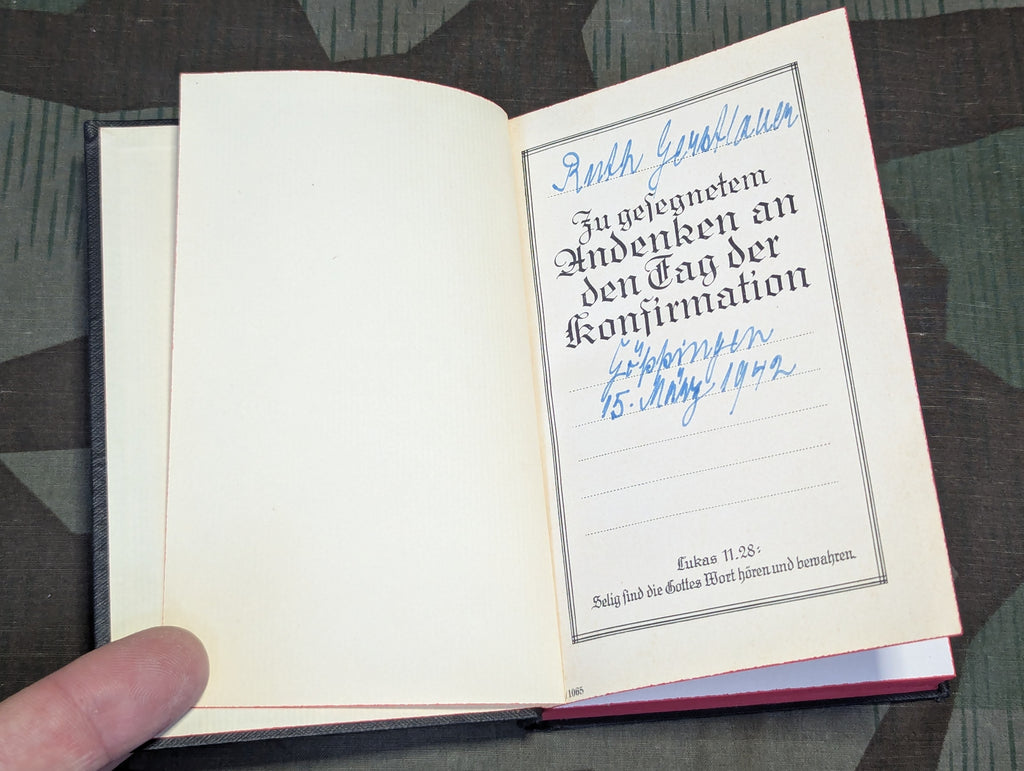 Ruth Gerstlauer
Zu gesegnetem
Andenken an
den Tag der
Konfirmation
Göppingen
15. März 1942
Lukas 11.28:
Selig sind die Gottes Wort hören und bewahren.
1065